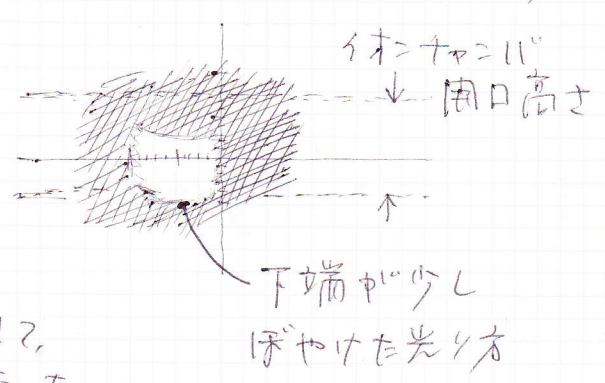 イオンチャンバ
開口高さ
下端が少し
ぼやけた光り方
して、